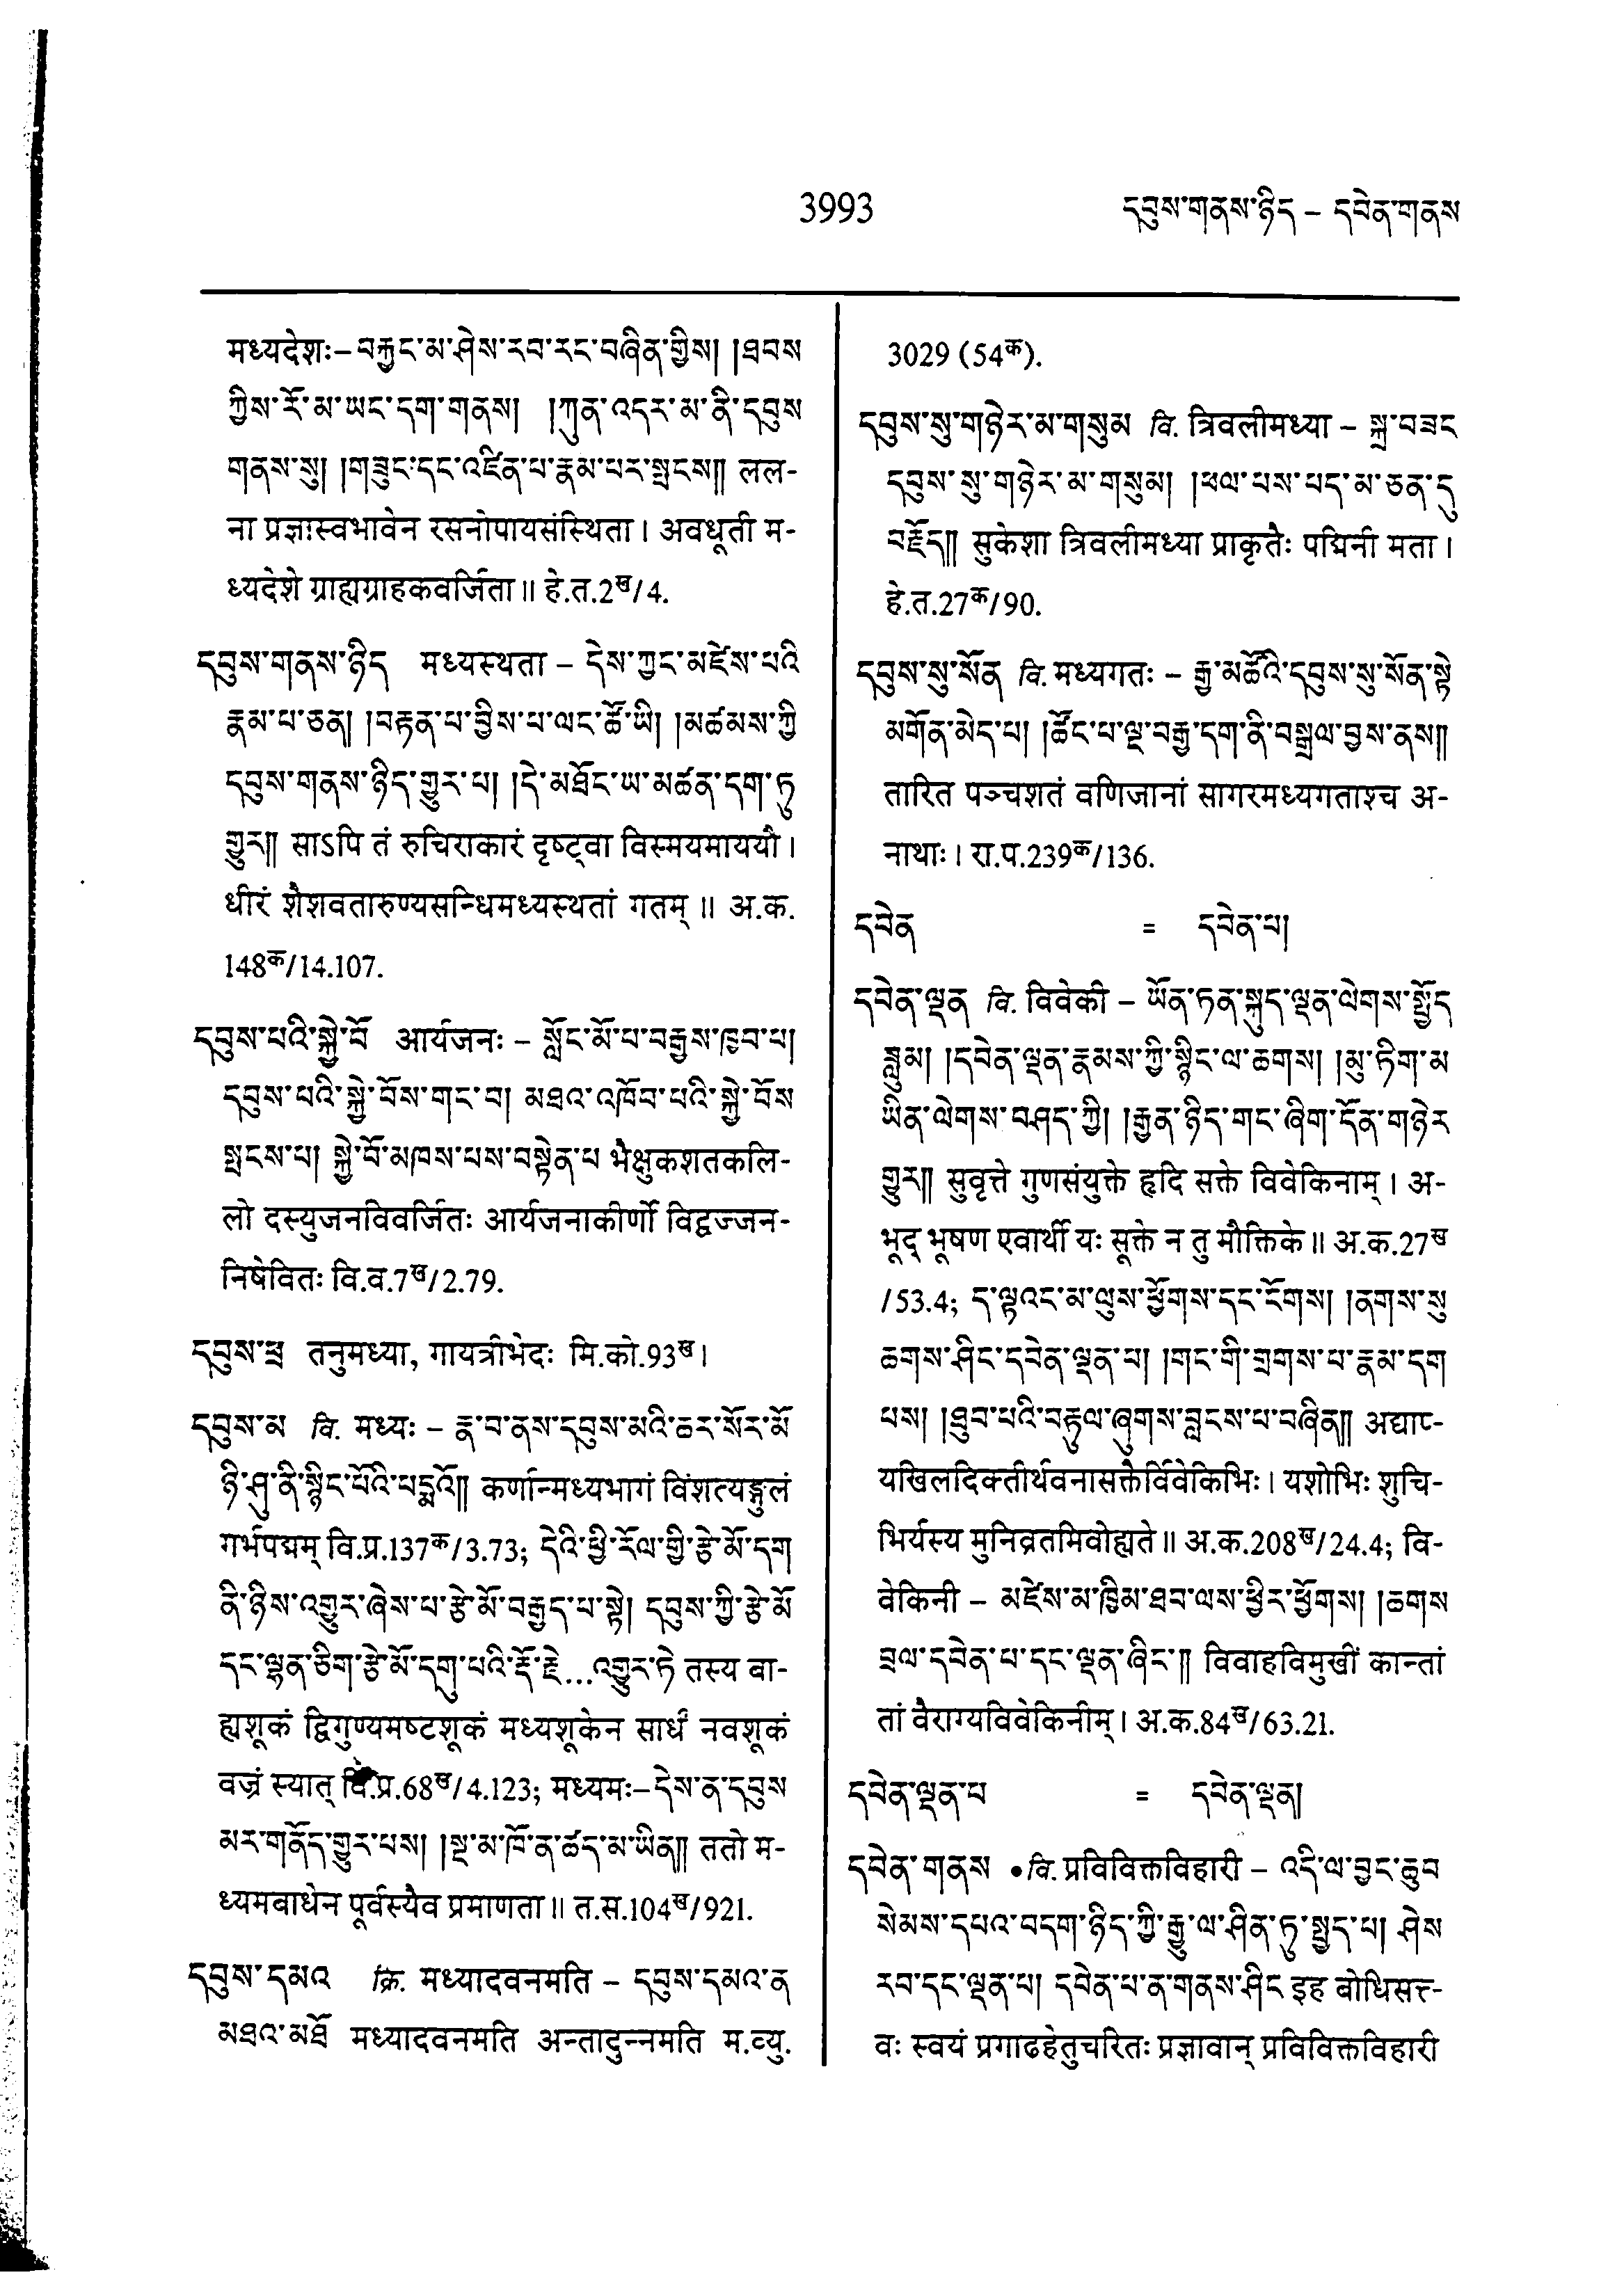 3993
དབུས་གནས་ཉིད – དབེན་གནས
मध्यदेशः– བརྐྱང་མ་ཤེས་རབ་རང་བཞིན་གྱིས། །ཐབས
ཀྱིས་རོ་མ་ཡང་དག་གནས། །ཀུན་འདར་མ་ནི་དབུས
གནས་སུ། །གཟུང་དང་འཛིན་པ་རྣམ་པར་སྤངས།། लल-
ना प्रज्ञास्वभावेन रसनोपायसंस्थिता । अवधूती म-
ध्यदेशे ग्राह्यग्राहकवर्जिता ॥ हे.त.2ख/4.
དབུས་གནས་ཉིད मध्यस्थता – དེས་ཀྱང་མཛེས་པའི
རྣམ་པ་ཅན། །བརྟན་པ་བྱིས་པ་ལང་ཚོ་ཡི། །མཚམས་ཀྱི
དབུས་གནས་ཉིད་གྱུར་པ། །དེ་མཐོང་ཡ་མཚན་དག་ཏུ
གྱུར།། साऽपि तं रुचिराकारं दृष्ट्वा विस्मयमाययौ ।
धीरं शैशवतारुण्यसन्धिमध्यस्थतां गतम् ॥ अ.क.
148क/14.107.
དབུས་པའི་སྐྱེ་བོ आर्यजनः – སློང་མོ་པ་བརྒྱས་ཁྱབ་པ།
དབུས་པའི་སྐྱེ་བོས་གང་བ། མཐའ་འཁོབ་པའི་སྐྱེ་བོས
སྤངས་པ། སྐྱེ་བོ་མཁས་པས་བསྟེན་པ भैक्षुकशतकलि-
लो दस्युजनविवर्जितः आर्यजनाकीर्णो विद्वज्जन-
निषेवितः वि.व.7ख/2.79.
དབུས་ཕྲ तनुमध्या, गायत्रीभेदः मि.को.93ख।
དབུས་མ वि. मध्यः – རྣ་བ་ནས་དབུས་མའི་ཆར་སོར་མོ
ཉི་ཤུ་ནི་སྙིང་པོའི་པདྨའོ།། कर्णान्मध्यभागं विंशत्यङ्गुलं
गर्भपद्मम् वि.प्र.137क/3.73; དེའི་ཕྱི་རོལ་གྱི་རྩེ་མོ་དག
ནི་ཉིས་འགྱུར་ཞེས་པ་རྩེ་མོ་བརྒྱད་པ་སྟེ། དབུས་ཀྱི་རྩེ་མོ
དང་ལྷན་ཅིག་རྩེ་མོ་དགུ་པའི་རྡོ་རྗེ...འགྱུར་ཏེ तस्य बा-
ह्यशूकं द्विगुण्यमष्टशूकं मध्यशूकेन सार्धं नवशूकं
वज्रं स्यात् वि.प्र.68ख/4.123; मध्यमः– དེས་ན་དབུས
མར་གནོད་གྱུར་པས། །སྔ་མ་ཁོ་ན་ཚད་མ་ཡིན།། ततो म-
ध्यमबाधेन पूर्वस्यैव प्रमाणता ॥ त.स.104ख/921.
དབུས་དམའ क्रि. मध्यादवनमति – དབུས་དམའ་ན
མཐའ་མཐོ मध्यादवनमति अन्तादुन्नमति म.व्यु.
3029 (54क).
དབུས་སུ་གཉེར་མ་གསུམ वि. त्रिवलीमध्या – སྐྲ་བཟང
དབུས་སུ་གཉེར་མ་གསུམ། །ཕལ་པས་པད་མ་ཅན་དུ
བརྗོད།། सुकेशा त्रिवलीमध्या प्राकृतैः पद्मिनी मता ।
हे.त.27क/90.
དབུས་སུ་སོན वि. मध्यगतः – རྒྱ་མཚོའི་དབུས་སུ་སོན་སྟེ
མགོན་མེད་པ། །ཚོང་པ་ལྔ་བརྒྱ་དག་ནི་བསྒྲལ་བྱས་ནས།།
तारित पञ्चशतं वणिजानां सागरमध्यगताश्च अ-
नाथाः । रा.प.239क/136.
དབེན = དབེན་པ།
དབེན་ལྡན वि. विवेकी – ཡོན་ཏན་སྐུད་ལྡན་ལེགས་སྤྱོད
ཟླུམ། །དབེན་ལྡན་རྣམས་ཀྱི་སྙིང་ལ་ཆགས། །མུ་ཏིག་མ
ཡིན་ལེགས་བཤད་ཀྱི། །རྒྱན་ཉིད་གང་ཞིག་དོན་གཉེར
གྱུར།། सुवृत्ते गुणसंयुक्ते हृदि सक्ते विवेकिनाम् । अ-
भूद् भूषण एवार्थी यः सूक्ते न तु मौक्तिके ॥ अ.क.27ख
/53.4; ད་ལྟའང་མ་ལུས་ཕྱོགས་དང་ངོགས། །ནགས་སུ
ཆགས་ཤིང་དབེན་ལྡན་པ། །གང་གི་གྲགས་པ་རྣམ་དག
པས། །ཐུབ་པའི་བརྟུལ་ཞུགས་བླངས་པ་བཞིན།། अद्याऽ-
यखिलदिक्तीर्थवनासक्तैर्विवेकिभिः । यशोभिः शुचि-
भिर्यस्य मुनिव्रतमिवोह्यते ॥ अ.क.208ख/24.4; वि-
वेकिनी – མཛེས་མ་ཁྱིམ་ཐབ་ལས་ཕྱིར་ཕྱོགས། །ཆགས
བྲལ་དབེན་པ་དང་ལྡན་ཞིང་།། विवाहविमुखीं कान्तां
तां वैराग्यविवेकिनीम् । अ.क.84ख/63.21.
དབེན་ལྡན་པ = དབེན་ལྡན།
དབེན་གནས •वि. प्रविविक्तविहारी – འདི་ལ་བྱང་ཆུབ
སེམས་དཔའ་བདག་ཉིད་ཀྱི་རྒྱུ་ལ་ཤིན་ཏུ་སྤྱད་པ། ཤེས
རབ་དང་ལྡན་པ། དབེན་པ་ན་གནས་ཤིང इह बोधिसत्त-
वः स्वयं प्रगाढहेतुचरितः प्रज्ञावान् प्रविविक्तविहारी